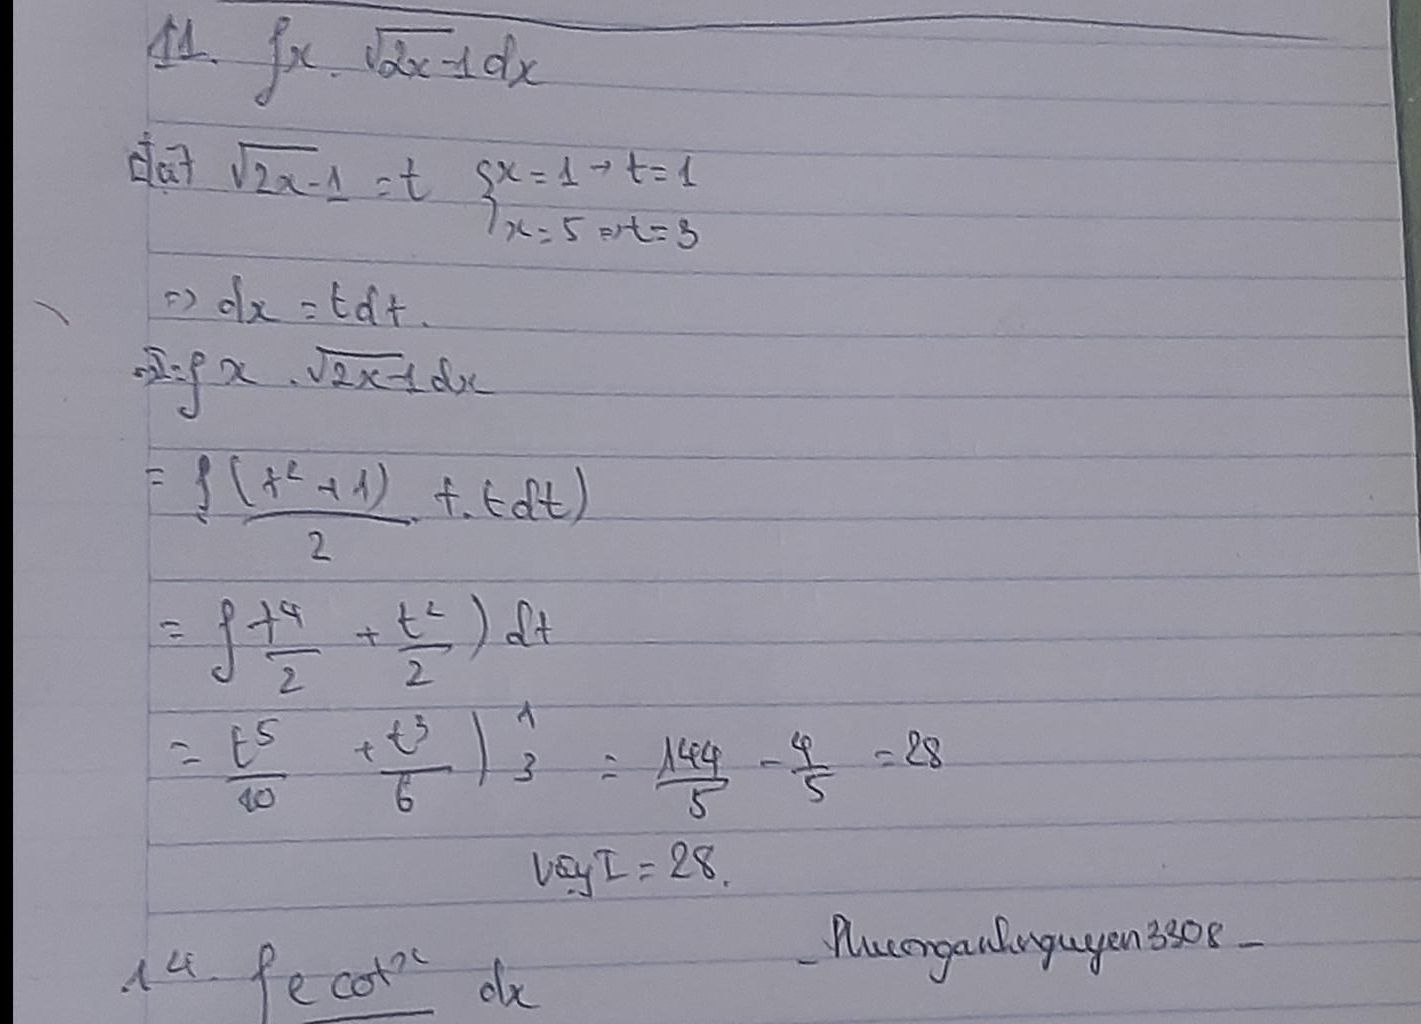 11. ∫x.√2x-1 dx
đặt √2x-1 = t {x = 1 → t = 1
x = 5 => t = 3
=> dx = tdt.
=> I = ∫ x . √2x-1 dx
= ∫ (t² + 1)/2 . t . t dt)
= ∫ t⁴/2 + t²/2 ) dt
= t⁵/10 + t³/6 ) | 1 3 = 144/5 - 4/5 = 28
Vậy I = 28.
- Phuonganhnguyen3308 -
14. ∫ e cot x dx